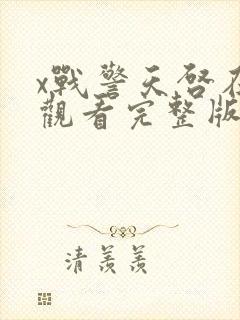 x戰警天啓在
觀看完整版
清羨羨